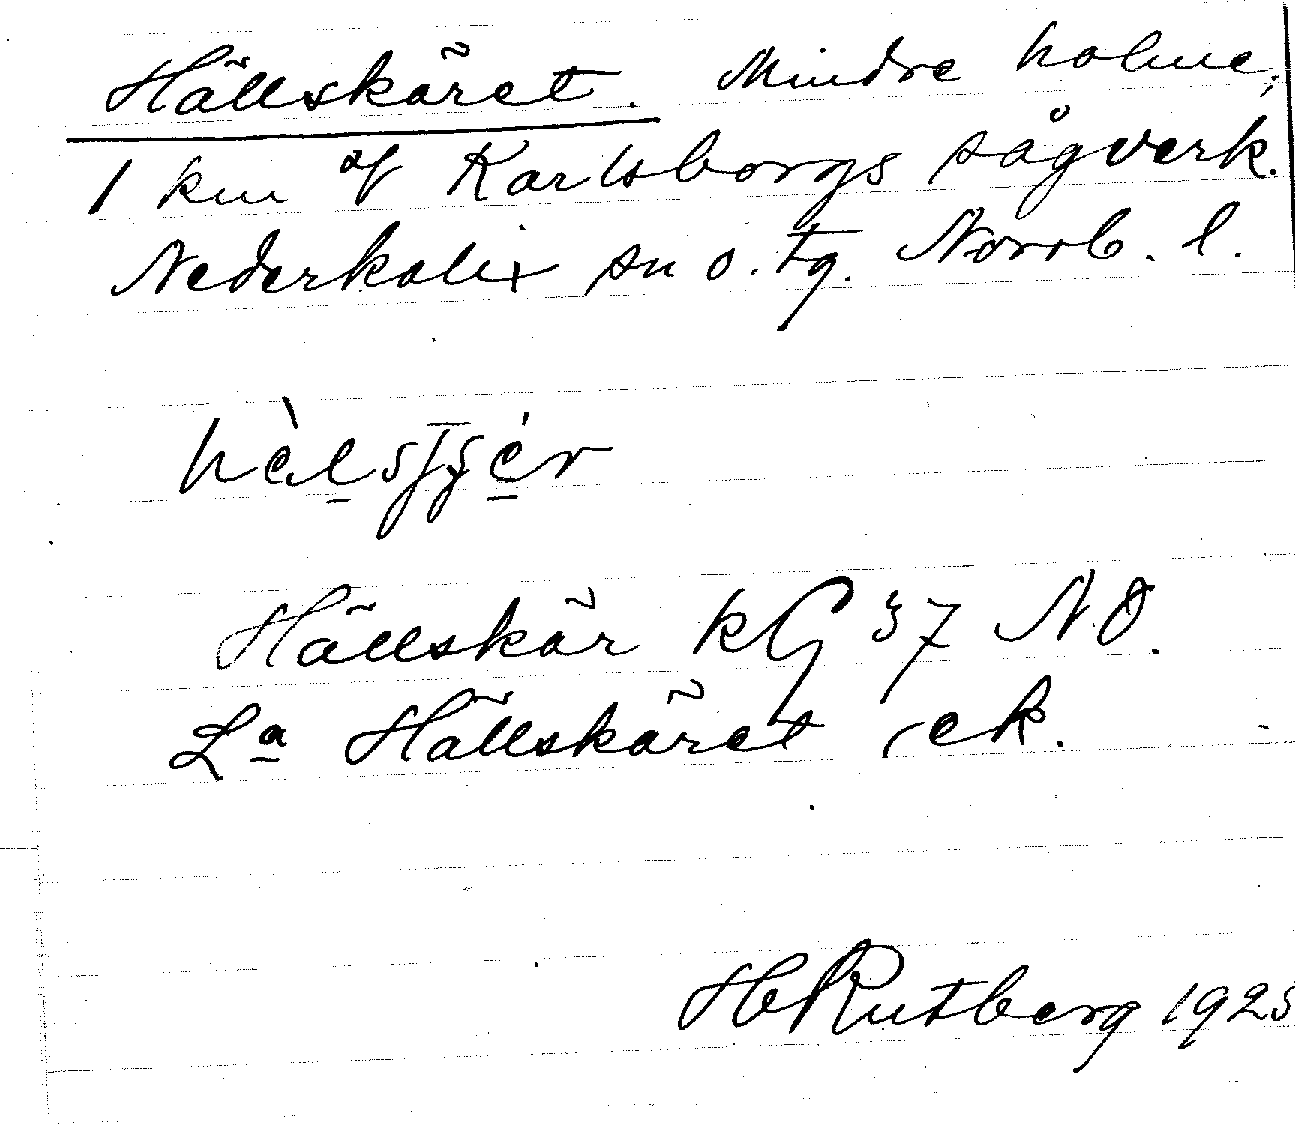 Hällskäret. Mindre holme,
1 km af Karlsborgs sågverk.
Nederkalix sn o. tg. Norrb. l.
Hällskär kG 37 NO.
La Hällskäret, ek.
H Rutberg 192